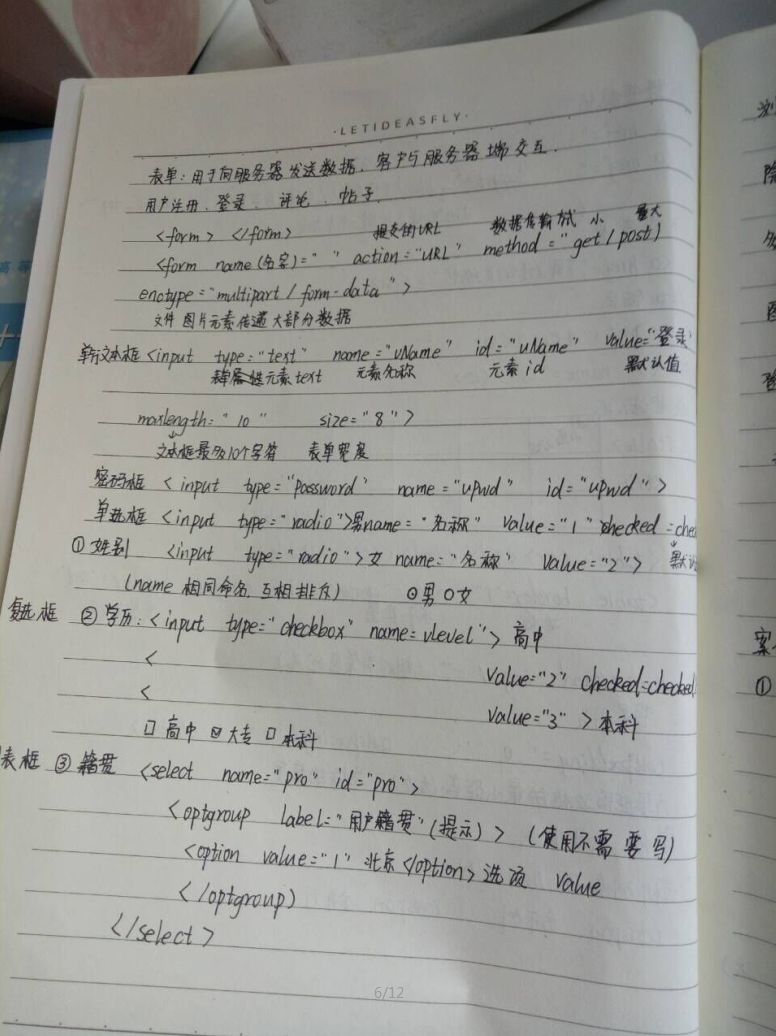 ·LETIDEASFLY·
表单:用于向服务器发送数据、客户与服务器端交互.
用户注册、登录、评论、帖子.
<form> </form> 提交的URL 数据传输方式 小 量大
<form name(名字)=" " action="URL" method="get/post)
enctype="multipart/form-data">
文件 图片元素传递大部分数据
单行文本框 <input type="text" name="uName" id="uName" value="登录
元素text 元素名称 元素id 默认值
maxlength="10" size="8">
文本框最多10个字符 表单宽度
密码框 <input type="password" name="upwd" id="upwd">
单选框 <input type="radio">男name="名称" value="1" checked=che
①姓别 <input type="radio">女 name="名称" value="2"> 默认
(name 相同命名,互相排斥) ⊙男 ○女
复选框 ②学历:<input type="checkbox" name=vlevel"> 高中
< value="2" checked=checked
< value="3" >本科
□高中 ☑大专 □本科
表框 ③籍贯 <select name="pro" id="pro">
<optgroup label="用户籍贯"(提示)> (使用不需要写)
<option value="1" 北京</option>选项 value
</optgroup)
</select>
6/12
案
①